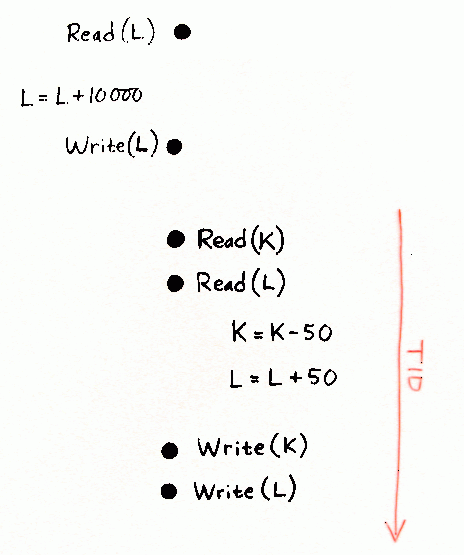 Read(L)
L = L + 10000
Write(L)
Read(K)
Read(L)
K = K - 50
L = L + 50
Write(K)
Write(L)
TID